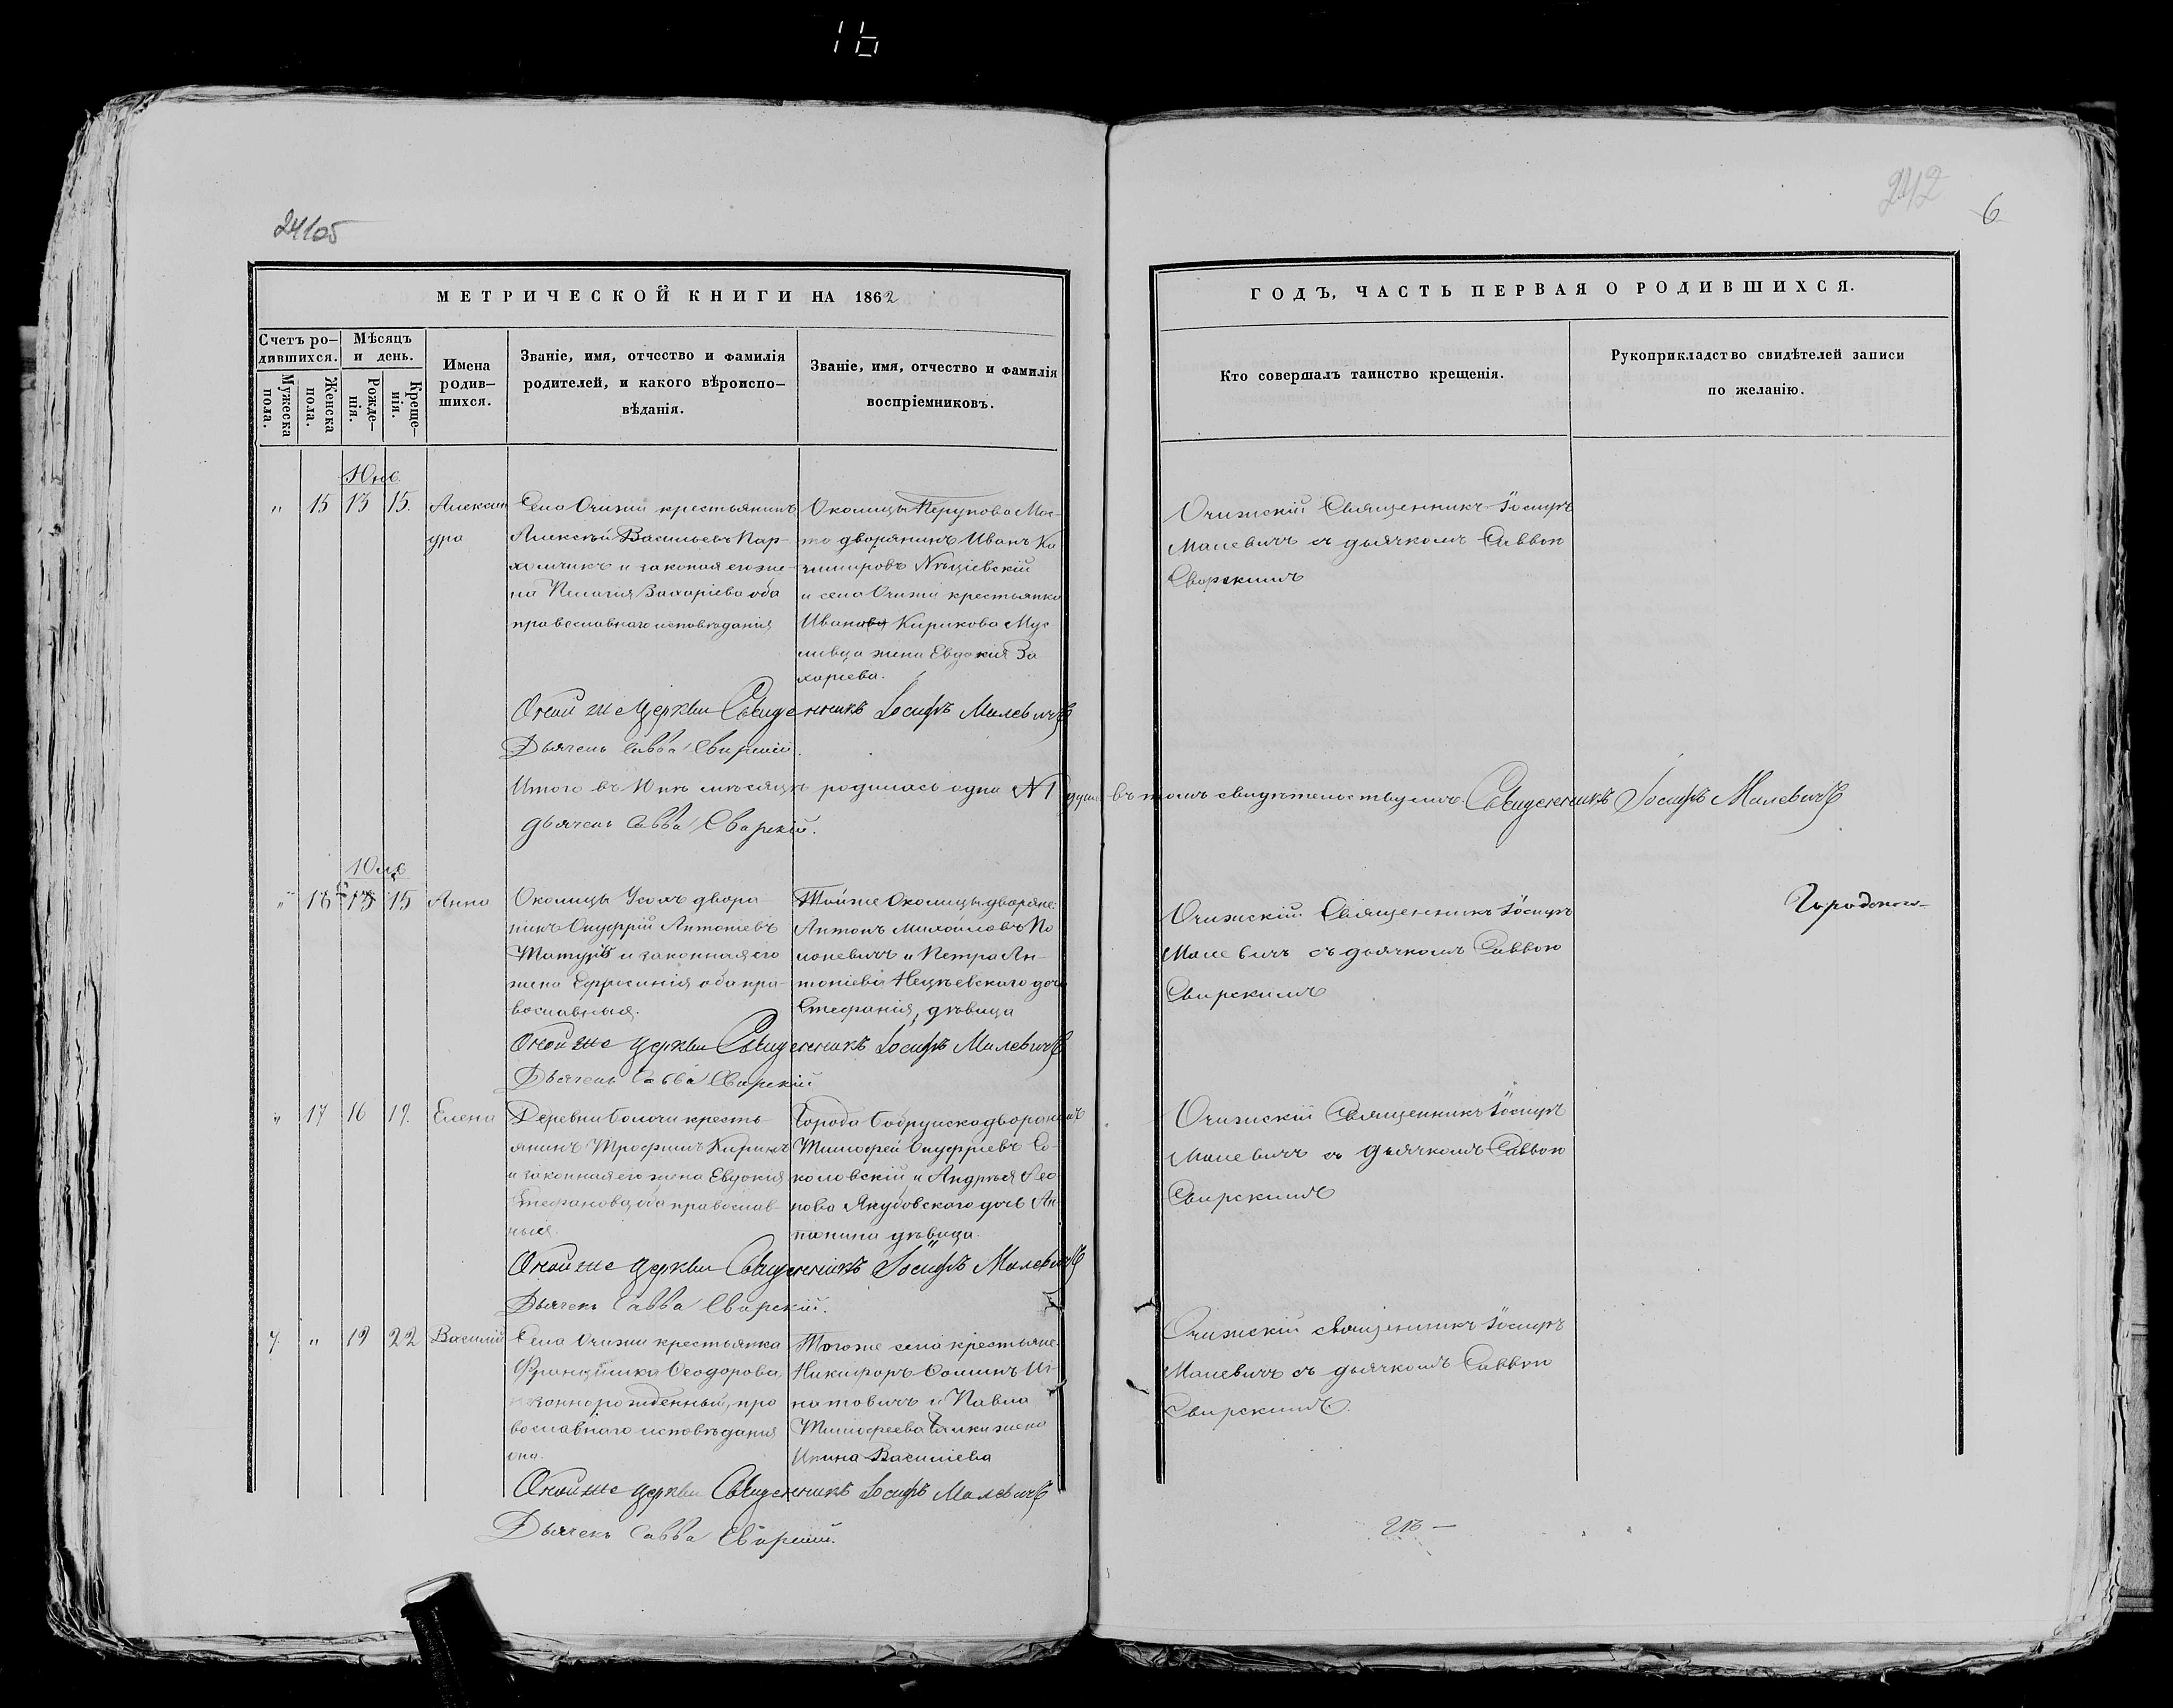 16
24105
242
6
МЕТРИЧЕСКОЙ КНИГИ НА 1862
Счетъ ро-
дившихся.
Мужеска
пола.
Женска
пола.
Мѣсяцъ
и день.
Рожде-
нія.
Креще-
нія.
Имена
родив-
шихся.
Званіе, имя, отчество и фамилія
родителей, и какого вѣроиспо-
вѣданія.
Званіе, имя, отчество и фамилія
воспріемниковъ.
Юнь
" 15 13 15.
Алексан
дра
Села Очижи крестьянинъ
Алексѣй Васильевъ Пар-
хомчикъ и законая его же-
на Пелагія Захаріева оба
православнаго исповѣданія
Околицы
дворянинъ Иванъ Ка
зимировъ
и села Очижи крестьянка
Иванова Кирикова Мус
ливца жена Евдокія За
харіева.
Оной же Церкви Священникъ Іосифъ Малевичъ
Дьячекъ Савва Свирскій.
Итого въ Юнѣ мѣсяцѣ родилась одна № 1 душа въ томъ свидѣтельствуемъ Священникъ Іосифъ Малевичъ
дьячекъ Савва Свирскій.
Юль
" 16 13 15
Анна
Околицы двора
нинъ Онуфрій Антоніевъ
и законная его
жена Ефросинія оба пра-
вославныя.
Тойже Околицы дворяне:
Антонъ Михайловъ По
лоневичъ и Петра Ан-
тоніева Нецѣевскаго дочь
Стефанія, дѣвица
Оной же церкви Священникъ Іосифъ Малевичъ
Дьячекъ Савва Свирскій
" 17 16 19.
Елена
Деревни Болочи кресть-
янинъ Трофимъ Кирикъ
и законная его жена Евдокія
Стефанова, оба православ-
ныя.
Города Бобруйска дворянинъ
Тимофей Онуфріевъ Со-
коловскій и Андрѣя Лео
нова Якубовскаго дочь Ан
тонина дѣвица.
Оной же церкви Священникъ Іосифъ Малевичъ
Дьячекъ Савва Свирскій.
7 " 19 22
Василій
Села Очижи крестьянка
Францишка Феодорова,
незаконнорожденный, пра
вославнаго исповѣданія
она.
Тогоже села крестьяне
Никифоръ Фоминъ Иг-
натовичъ и Павла
Тимофеева Галки жена
Ирина Василіева
Оной же церкви Священникъ Іосифъ Малевичъ
Дьячекъ Савва Свирскій.
ГОДЪ, ЧАСТЬ ПЕРВАЯ О РОДИВШИХСЯ.
Кто совершалъ таинство крещенія.
Рукоприкладство свидѣтелей записи
по желанію.
Очижскій Священникъ Іосифъ
Малевичъ съ дьячкомъ Саввою
Сворскимъ
Очижскій Священникъ Іосифъ
Малевичъ съ дьячкомъ Саввою
Свирскимъ
Очижскій Священникъ Іосифъ
Малевичъ съ дьячкомъ Саввою
Свирскимъ
Очижскій священникъ Іосифъ
Малевичъ съ дьячкомъ Саввою
Свирскимъ.